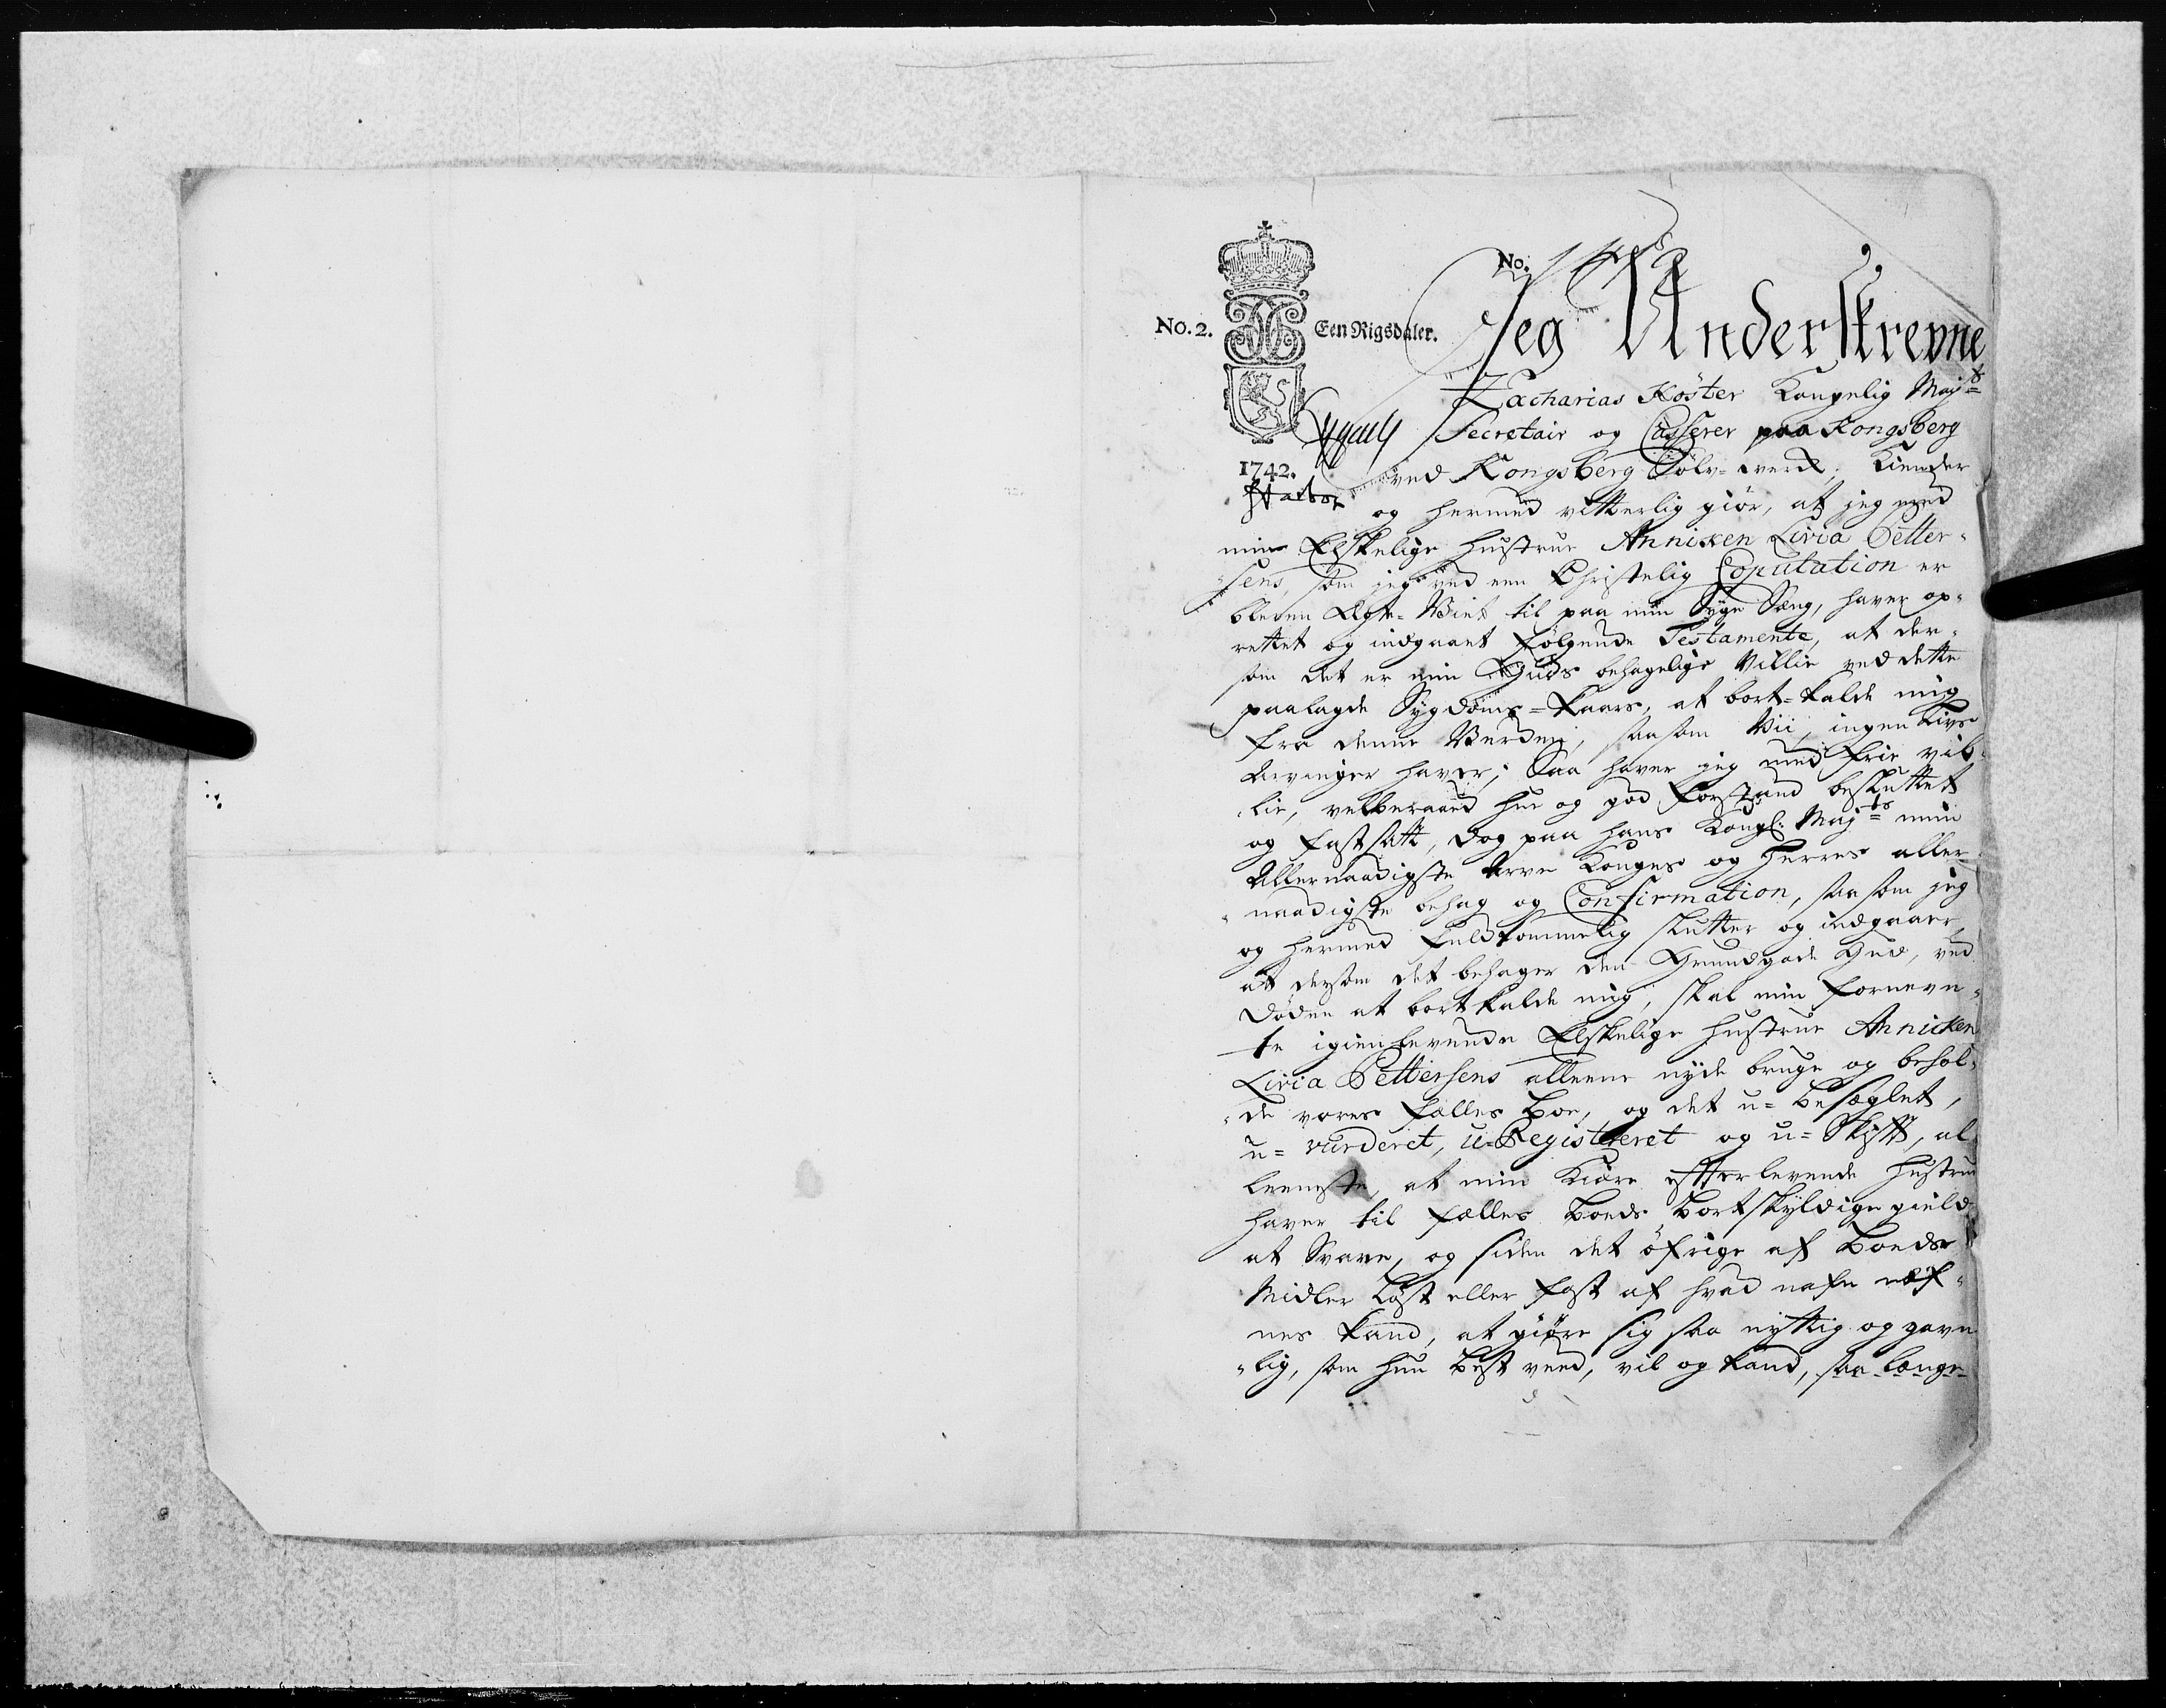 No. 1442
No. 2. Een Rigsdaler.
Jeg Underskrevne
Zacharias Köster Kongelig Maj:ts
Secretair og Casserer paa Kongsberg
1742.
ved Kongsberg Sølv-werk, Kiender
og hermed vitterlig giør, at jeg med
min Elskelige Hustrue Anniken Livia Petter-
sens, som jeg ved een Christelig Coputation er
bleven Ægte-Viet til paa min Syge Seng, haver op-
rettet og indgaaet følgende Testamente, at der-
som det er min Guds behagelige Villie ved dette
paalagde Sygdoms-Kaars, at bort-kalde mig
fra denne Verden, saasom Vii ingen Livs
Arvinger haver; Saa haver jeg med frie vil-
lie, velberaad Hue og god Forstand besluttet
og fastsatt, dog paa Hans Kongl: Maj:ts min
Allernaadigste Arve Konges og Herres aller-
naadigste behag og Confirmation, saasom jeg
og hermed fuldkommelig slutter og indgaaer,
at dersom det behager den Grundgode Gud, ved
Døden at bortkalde mig, skal min fornevn-
te igienlevende Elskelige Hustrue Anniken
Livia Pettersens alleene nyde bruge og behol-
de vores fælles Boe, og det u-beseglet,
u-vurderet, u-Registreret og u-Skift, al-
leeneste, at min Kiære efterlevende Hustrue
haver til fælles Boeds bortskyldige gield
at Svare, og siden det öfrige af Boeds
Midler Løst eller fast af hvad nafn nef-
nes kand, at giøre sig saa nyttig og gavn-
lig, som hun best veed, vil og kand, saa længe